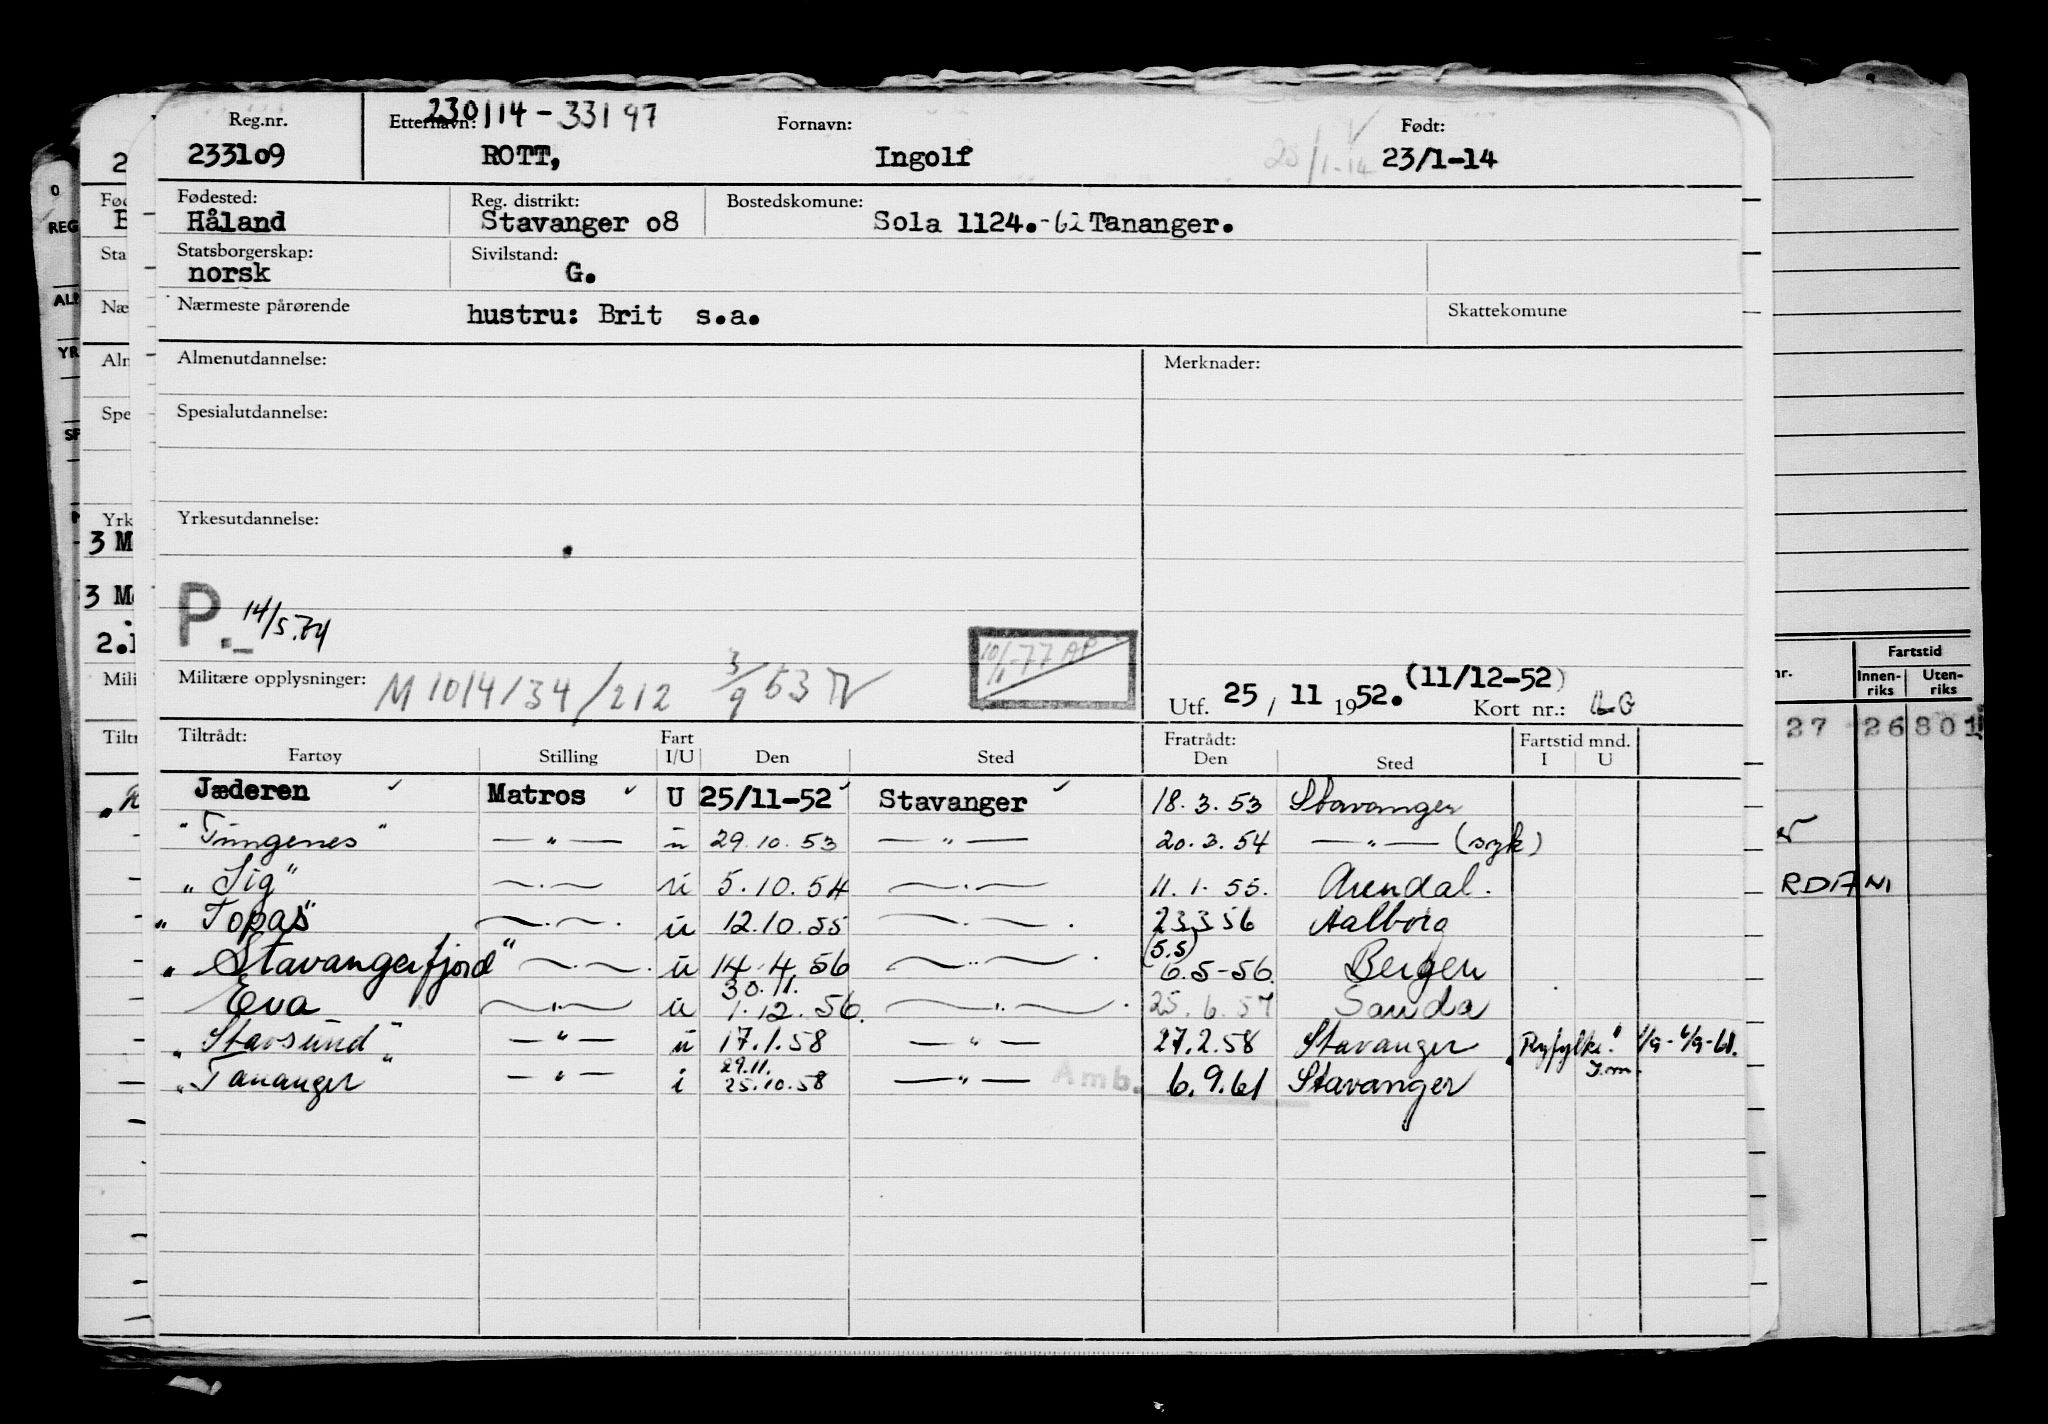 Reg.nr. Etternavn: 230114-33197 Fornavn: Født:
233109 ROTT, Ingolf 25/1-14 23/1-14
Fødested: Reg. distrikt: Bostedskomune:
Håland Stavanger o8 Sola 1124.-62 Tananger.
Statsborgerskap: Sivilstand:
norsk G.
Nærmeste pårørende hustru: Brit s.a. Skattekomune
Almenutdannelse: Merknader:
Spesialutdannelse:
Yrkesutdannelse:
P. 14/5.74
Militære opplysninger: M 1014/34/212 3/9 63 10/1-77 AP
Utf. 25/11 1952. (11/12-52) Kort nr.:
Tiltrådt: Fart Fratrådt: Fartstid mnd.
Fartøy Stilling I/U Den Sted Den Sted I U
Jæderen Matros U 25/11-52 Stavanger 18.3.53 Stavanger
"Tungenes" — " — u 29.10.53 — " — 20.3.54 — " — (syk)
"Sig" — " — u 5.10.54 — " — 11.1.55. Arendal.
"Topas" — " — u 12.10.55 — " — 23356 Aalborg
"Stavangerfjord" — " — u 14.4.56 — " — (5.5) 6.5-56 Bergen
Eva — " — u 30.11. 1.12.56. — " — 25.6.57 Sauda
"Stavsund" — " — u 17.1.58 — " — 27.2.58 Stavanger "Ryfylke" 1/9-6/9-61.
"Tananger" — " — i 29.11. 25.10.58 — " — Amb. 6.9.61 Stavanger I.m.
Fartstid
Innenriks Utenriks
27 26 801
RDANI